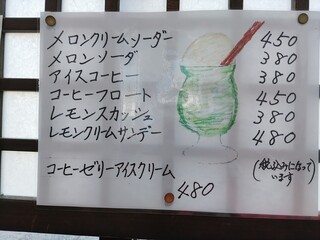 メロンクリームソーダー 450
メロンソーダ 380
アイスコーヒー 380
コーヒーフロート 450
レモンスカッシュ 380
レモンクリームサンデー 480
コーヒーゼリーアイスクリーム 480
(税込みになって
います)